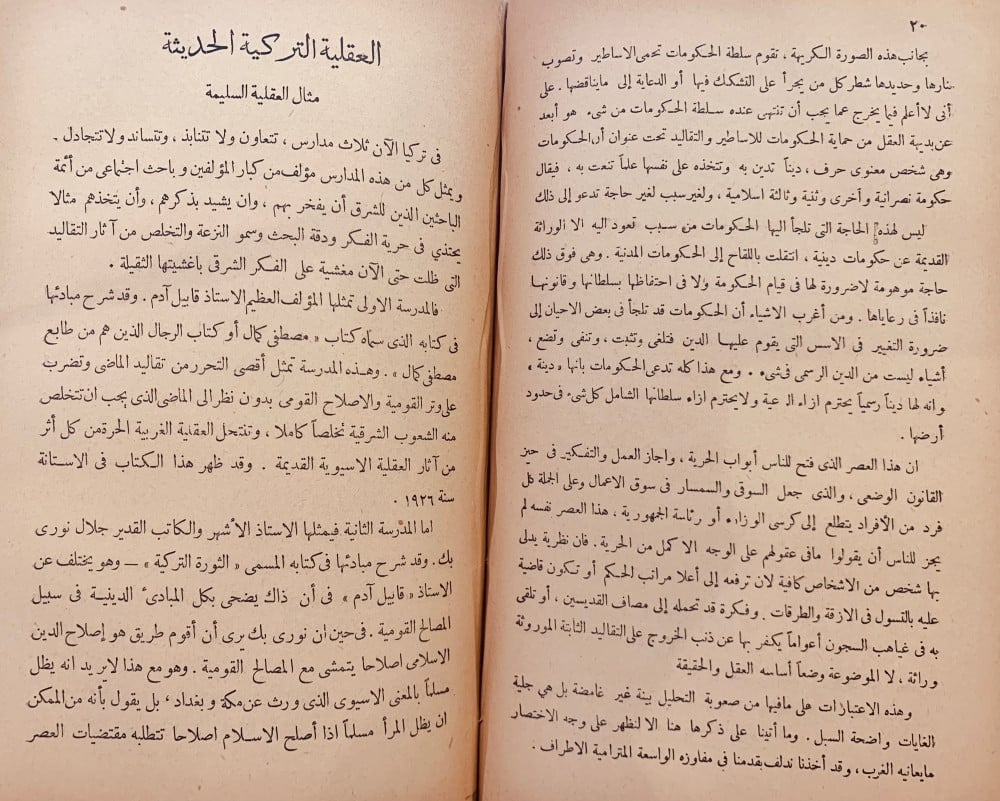 ٢٠
بجانب هذه الصورة الكريهة ، تقوم سلطة الحكومات تحمى الاساطير وتصوب
بنارها وحديدها شطر كل من يجرأ على التشكك فيها أو الدعاية إلى مايناقضها . على
أنى لاأعلم فيما يخرج عما يجب أن تنتهى عنده سلطة الحكومات من شىء هو أبعد
عن بديهة العقل من حماية الحكومات للاساطير والتقاليد تحت عنوان أن الحكومات
وهى شخص معنوى حرف ، ديناً تدين به وتتخذه على نفسها علماً تنعت به ، فيقال
حكومة نصرانية وأخرى وثنية وثالثة اسلامية ، ولغير سبب لغير حاجة تدعو إلى ذلك
ليس لهذه الحاجة التى تلجأ اليها الحكومات من سبب تعود اليه الا الوراثة
القديمة عن حكومات دينية ، انتقلت باللقاح إلى الحكومات المدنية . وهى فوق ذلك
حاجة موهومة لاضرورة لها فى قيام الحكومة ولا فى احتفاظها بسلطانها وقانونها
نافذاً فى رعاياها . ومن أغرب الاشياء أن الحكومات قد تلجأ فى بعض الاحيان إلى
ضرورة التغيير فى الاسس التى يقوم عليها الدين فتلغى وتثبت ، وتنفى وتضع ،
أشياء ليست من الدين الرسمى فى شىء . ومع هذا كله تدعى الحكومات بانها « دينة »
وانه لها ديناً رسمياً يحترم ازاء الرعية ولايحترم ازاء سلطانها الشامل كل شىء فى حدود
أرضها .
ان هذا العصر الذى فتح للناس أبواب الحرية ، واجاز العمل والتفكير فى حيز
القانون الوضعى ، والذى جعل السوقى والسمسار فى سوق الاعمال وعلى الجملة كل
فرد من الأفراد يتطلع إلى كرسى الوزاء أو رئاسة الجمهورية ، هذا العصر نفسه لم
يجز للناس أن يقولوا مافى عقولهم على الوجه الاكمل من الحرية . فان نظرية يدلى
بها شخص من الاشخاص كافية لان ترفعه إلى أعلا مراتب الحكم أو تكون قاضية
عليه بالتسول فى الازقة والطرقات . وفكرة قد تحمله إلى مصاف القديسين ، أو تلقى
به فى غياهب السجون أعواماً يكفر بها عن ذنب الخروج على التقاليد الثابتة الموروثة
وراثة ، لا الموضوعة وضعاً أساسه العقل والحقيقة
وهذه الاعتبارات على مافيها من صعوبة التحليل بينة غير غامضة بل هى جلية
الغايات واضحة السبل . وما أتينا على ذكرها هنا الا لنظهر على وجه الاختصار
مايعانيه الغرب ، وقد أخذنا ندلف بقدمنا فى مفاوزه الواسعة المترامية الاطراف .
العقلية التركية الحديثة
مثال العقلية السليمة
فى تركيا الآن ثلاث مدارس ، تتعاون ولا تتنابذ ، وتتساند ولاتتجادل .
ويمثل كل من هذه المدارس مؤلف من كبار المؤلفين وباحث اجتماعى من أئمة
الباحثين الذين للشرق أن يفخر بهم ، وان يشيد بذكرهم ، وأن يتخذهم مثالا
يحتذي فى حرية الفكر ودقة البحث وسمو النزعة والتخلص من آثار التقاليد
التى ظلت حتى الآن مغشية على الفكر الشرقى باغشيتها الثقيلة .
فالمدرسة الاولى تمثلها المؤلف العظيم الاستاذ قابيل آدم . وقد شرح مبادئها
فى كتابه الذى سماه كتاب « مصطفى كمال أو كتاب الرجال الذين هم من طابع
مصطفى كمال » . وهذه المدرسة تمثل أقصى التحرر من تقاليد الماضى وتضرب
على وتر القومية والاصلاح القومى بدون نظر الى الماضى الذى يجب ان تتخلص
منه الشعوب الشرقية تخلصاً كاملا ، وتنتحل العقلية الغربية الحرة من كل أثر
من آثار العقلية الاسيوية القديمة . وقد ظهر هذا الكتاب فى الاستانة
سنة ١٩٢٦ .
اما المدرسة الثانية فيمثلها الاستاذ الأشهر والكاتب القدير جلال نورى
بك . وقد شرح مبادئها فى كتابه المسمى « الثورة التركية » — وهو يختلف عن
الاستاذ « قابيل آدم » فى أن ذاك يضحى بكل المبادئ الدينية فى سبيل
المصالح القومية . فى حين ان نورى بك يرى أن أقوم طريق هو إصلاح الدين
الاسلامى اصلاحا يتمشى مع المصالح القومية . وهو مع هذا لايريد انه يظل
مسلماً بالمعنى الاسيوى الذى ورث عن مكة وبغداد ، بل يقول بأنه من الممكن
ان يظل المرأ مسلماً اذا أصلح الاسلام اصلاحا تتطلبه مقتضيات العصر